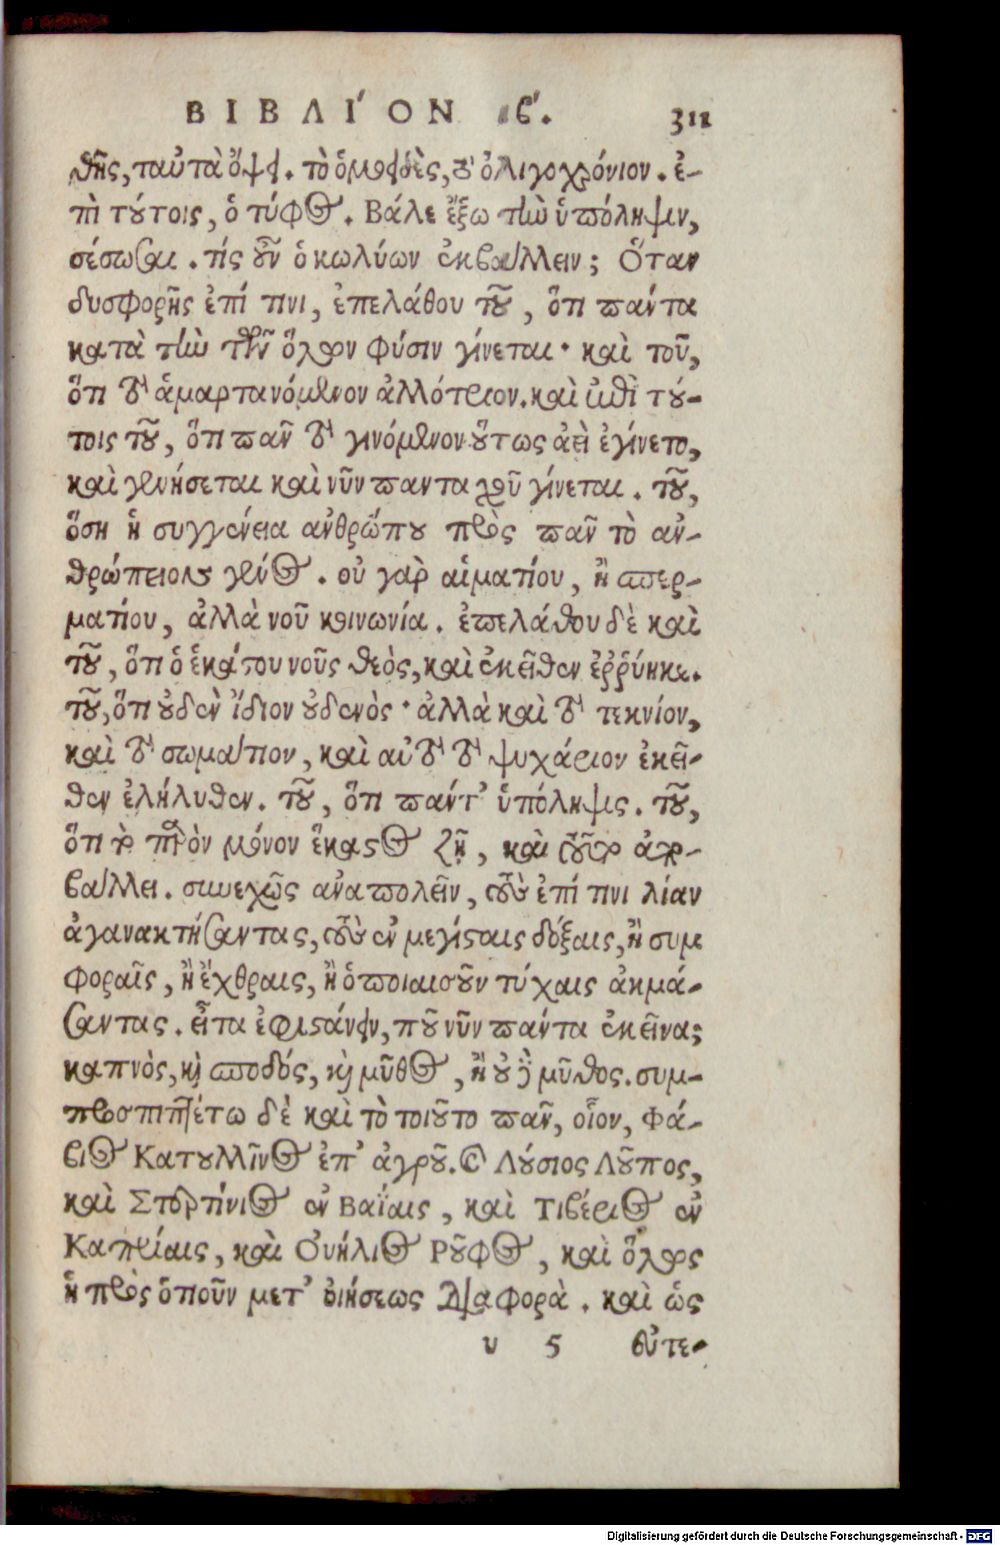 ΒΙΒΛΙ´ΟΝ ιϐ´. 311
θῇς, ταὐτὰ ὄψει. τὸ ὁμοειδὲς, τὸ ὀλιγοχρόνιον. ἐ-
πὶ τούτοις, ὁ τύφος. Βάλε ἔξω τὴν ὑπόληψιν,
σέσωσαι. τίς οὖν ὁ κωλύων ἐκβάλλειν; Ὅταν
δυσφορῇς ἐπί τινι, ἐπελάθου τοῦ, ὅτι πάντα
κατὰ τὴν τῶν ὅλων φύσιν γίνεται· καὶ τοῦ,
ὅτι τὸ ἁμαρτανόμενον ἀλλότριον. καὶ ἐπὶ τού-
τοις τοῦ, ὅτι πᾶν τὸ γινόμενον οὕτως ἀεὶ ἐγίνετο,
καὶ γενήσεται καὶ νῦν πανταχοῦ γίνεται. τοῦ,
ὅση ἡ συγγένεια ἀνθρώπου πρὸς πᾶν τὸ ἀν-
θρώπειον γένος. οὐ γὰρ αἱματίου, ἢ σπερ-
ματίου, ἀλλὰ νοῦ κοινωνία. ἐπελάθου δὲ καὶ
τοῦ, ὅτι ὁ ἑκάστου νοῦς θεὸς, καὶ ἐκεῖθεν ἐῤῥύηκε.
τοῦ, ὅτι οὐδὲν ἴδιον οὐδενὸς· ἀλλὰ καὶ τὸ τεκνίον,
καὶ τὸ σωμάτιον, καὶ αὐτὸ τὸ ψυχάριον ἐκεῖ-
θεν ἐλήλυθεν. τοῦ, ὅτι πάντ' ὑπόληψις. τοῦ,
ὅτι τὸ παρὸν μόνον ἕκαστος ζῇ, καὶ τοῦτο ἀπο-
βάλλει. συνεχῶς ἀναπολεῖν, τοὺς ἐπί τινι λίαν
ἀγανακτήσαντας, τοὺς ἐν μεγίσταις δόξαις, ἢ συμ
φοραῖς, ἢ ἔχθραις, ἢ ὁποιαισοῦν τύχαις ἀκμά-
σαντας. εἶτα ἐφιστάνειν, ποῦ νῦν πάντα ἐκεῖνα;
καπνὸς, καὶ σποδός, καὶ μῦθος, ἢ οὐδὲ μῦθος. συμ-
προσπιπτέτω δὲ καὶ τὸ τοιοῦτο πᾶν, οἷον, Φά-
βιος Κατουλλῖνος ἐπ' ἀγροῦ. καὶ Λούσιος Λοῦπος,
καὶ Στερτίνιος ἐν Βαΐαις, καὶ Τιβέριος ἐν
Καπρίαις, καὶ Οὐήλιος Ροῦφος, καὶ ὅλως
ἡ πρὸς ὁτιοῦν μετ' οἰήσεως διαφορὰ. καὶ ὡς
υ 5 εὐτε-
Digitalisierung gefördert durch die Deutsche Forschungsgemeinschaft - DFG